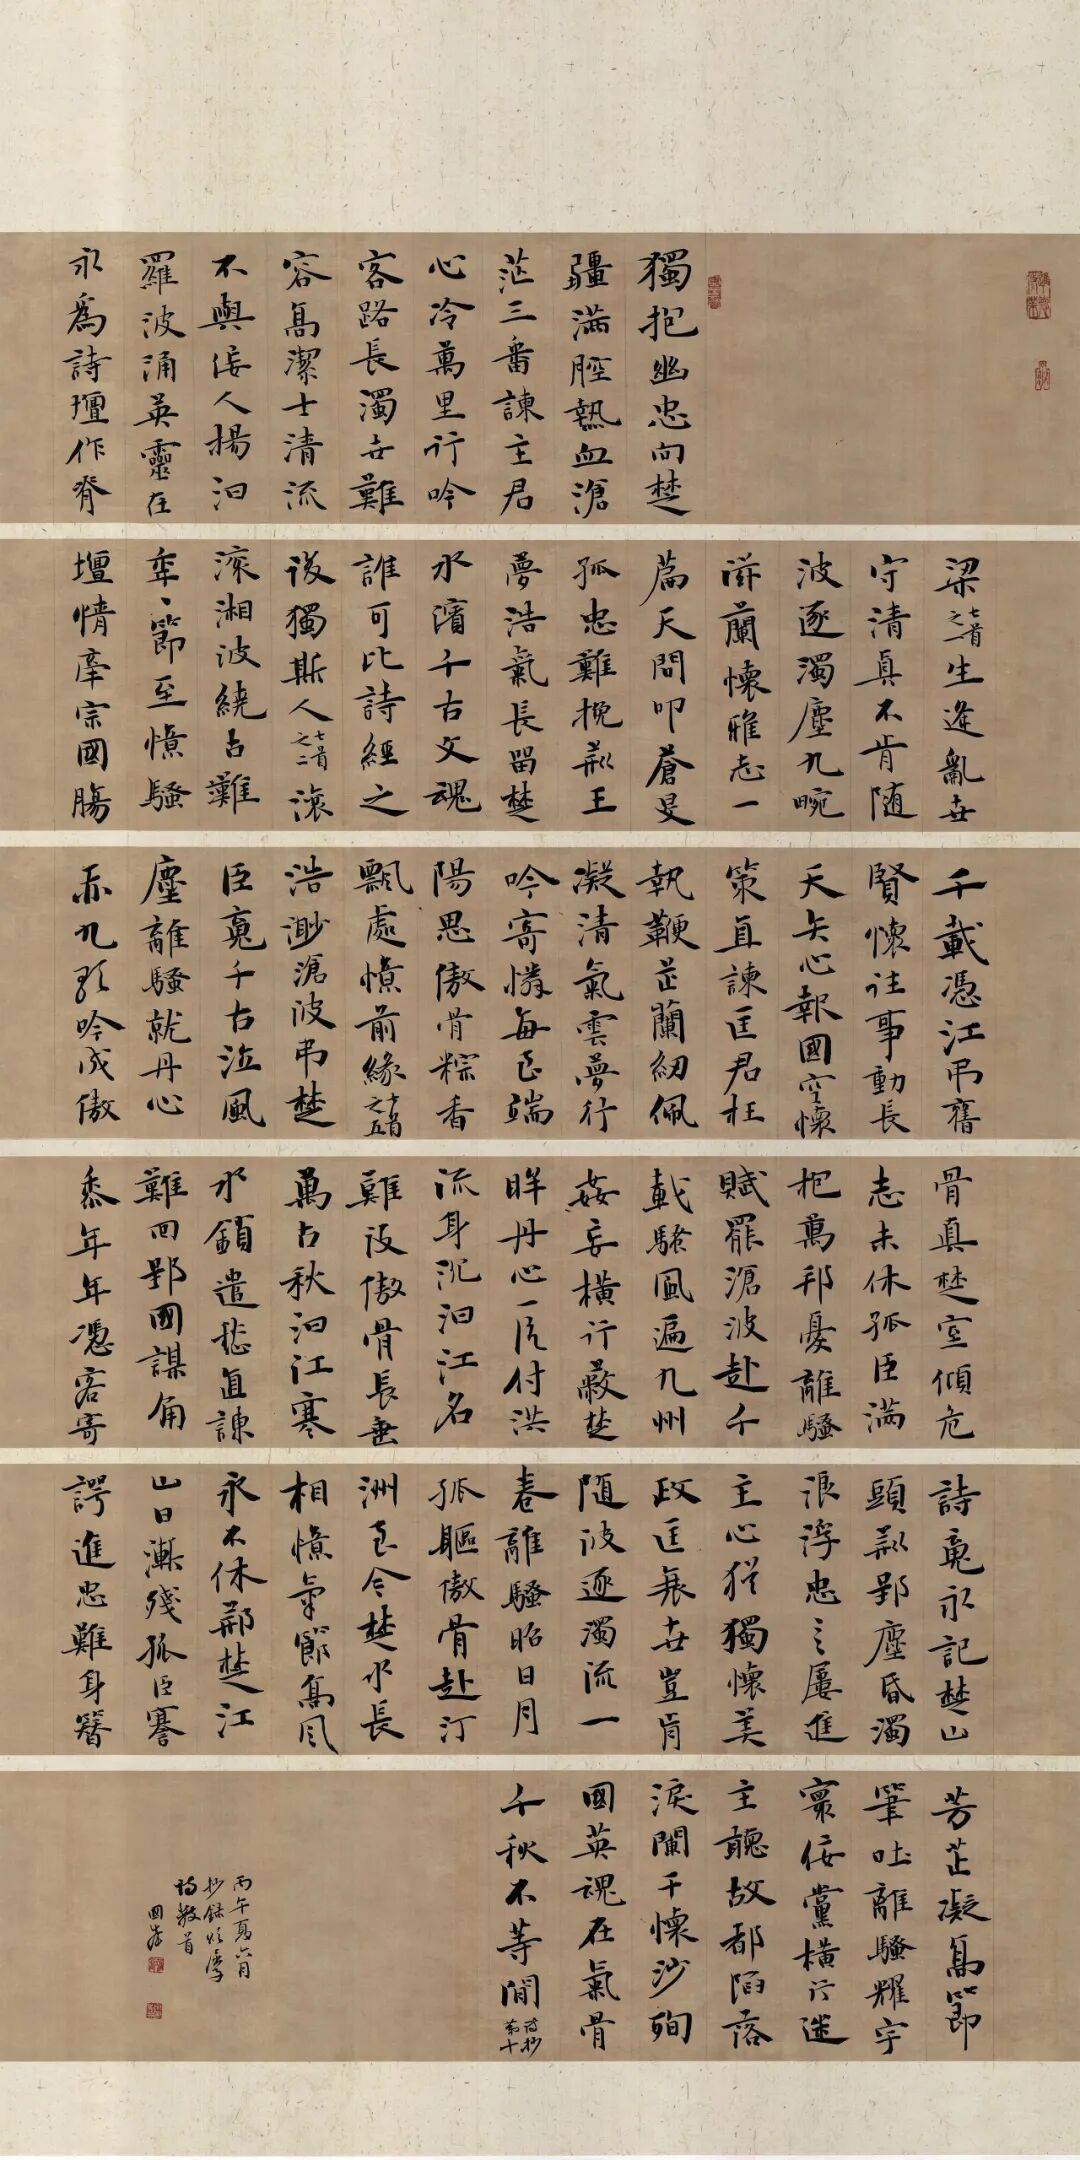 獨抱幽忠向楚
疆滿腔熱血滄
茫三番諫主君
心冷萬里行吟
客路長濁世難
容高潔士清流
不與佞人揚汨
羅波涌英靈在
永為詩壇作脊
梁七首之一生逢亂世
守清真不肯随
波逐濁塵九畹
滋蘭懷雅志一
篇天問叩蒼旻
孤忠難挽
夢浩氣長留楚
水濱千古文魂
誰可比詩經之
後獨斯人七首之二滚
滚湘波繞古灘
年年節至憶騷
壇情牽宗國腸
千載憑江弔舊
賢懷往事動長
天矢心報國空懷
策直諫匡君枉
執鞭芷蘭紉佩
凝清氣雲夢行
吟寄憐每至端
陽思傲骨粽香
飄處憶前緣十首之五
浩渺滄波弔楚
臣魂千古泣風
塵離騷就丹心
赤九歌吟成傲
骨真楚室傾危
志未休孤臣滿
把萬邦憂離騷
賦罷滄波赴千
載騷風遍九州
姦妄横行蔽楚
眸丹心一片付洪
流身沉汨江名
難没傲骨長垂
萬古秋汨江寒
水鎖遺愁直諫
難回郢國謀角
黍年年憑客寄
詩魂永記楚山
頭郢塵昏濁
浪浮忠言屢進
主心猶獨懷美
政匡衰世豈肯
随波逐濁流一
卷離騷昭日月
孤軀傲骨赴汀
洲至今楚水長
相憶氣節高風
永不休荊楚江
山日漸殘孤臣謇
諤進忠難身簪
芳芷凝高節
筆吐離騷耀宇
寰佞黨横行迷
主聽故都陷落
淚闌干懷沙殉
國英魂在氣骨
千秋不等閒
丙午夏六月
抄錄
詩數首